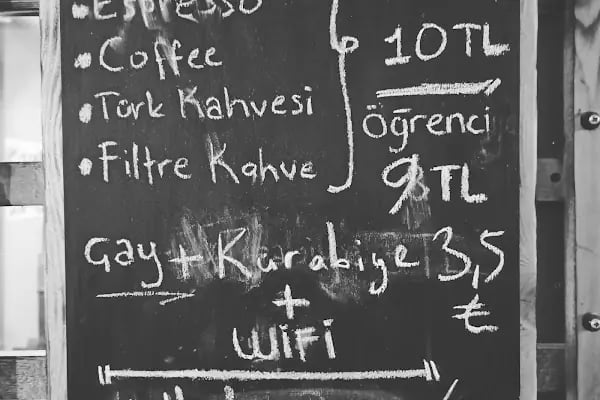 • Espresso
• Coffee
• Türk Kahvesi
• Filtre Kahve
10 TL
Öğrenci
9 TL
Çay + Kurabiye 3,5
₺
+
WiFi